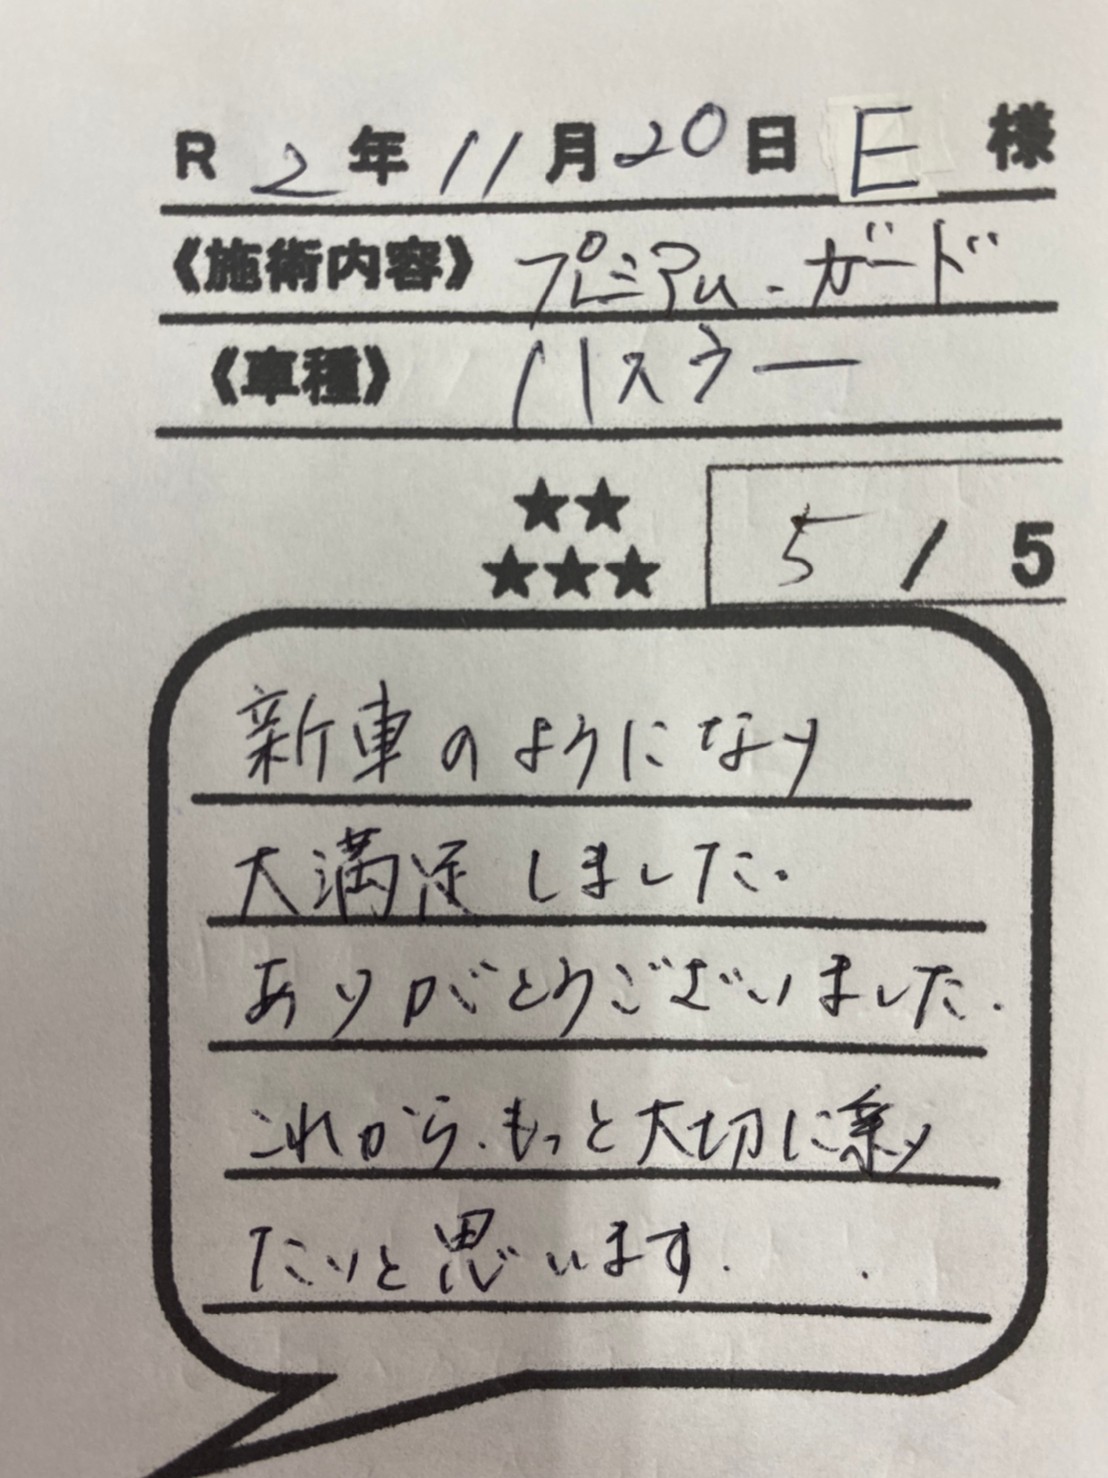 R 2年 11月20日 E 様
《施術内容》 プレミアム・ガード
《車種》 ハスラー
★★
★★★ 5 / 5
新車のようになり
大満足しました。
ありがとうございました.
これから、もっと大切に乗り
たいと思います.